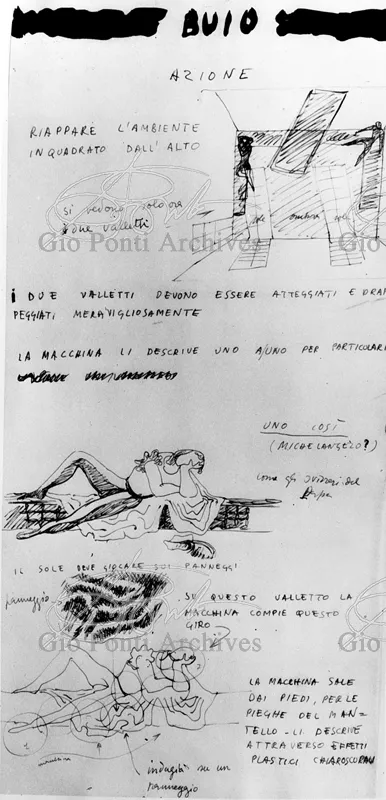 BUIO
AZIONE
RIAPPARE L'AMBIENTE
INQUADRATO DALL'ALTO
si vedono solo ora
due valletti
sole ombra sole
Gio Ponti Archives
Gio
I DUE VALLETTI DEVONO ESSERE ATTEGGIATI E DRAP
PEGGIATI MERAVIGLIOSAMENTE
LA MACCHINA LI DESCRIVE UNO A/UNO PER PARTICOLARI
UNO COSÌ
(MICHELANGELO?)
come gli
IL SOLE DEVE GIOCARE SUI PANNEGGI
panneggio
SU QUESTO VALLETTO LA
MACCHINA COMPIE QUESTO
GIRO
Gio Ponti Archives
Gio
LA MACCHINA SALE
DAI PIEDI, PER LE
PIEGHE DEL MAN=
TELLO - LI DESCRIVE
ATTRAVERSO EFFETTI
PLASTICI CHIAROSCURALI
indugia su un
panneggio